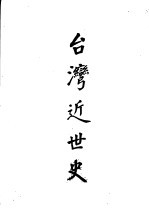 台灣近世史